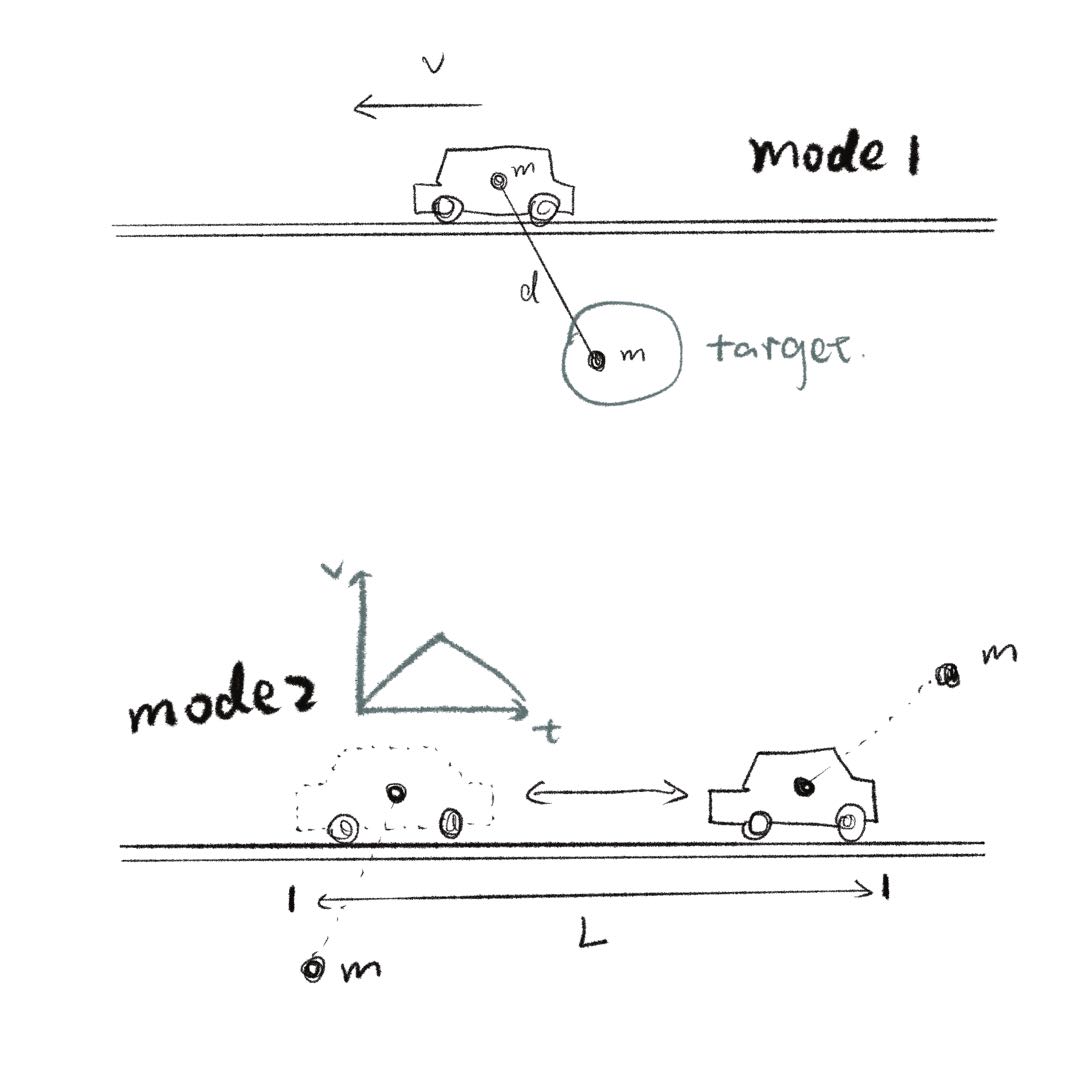 v
mode 1
m
d
m
target.
v
m
mode2
t
L
m